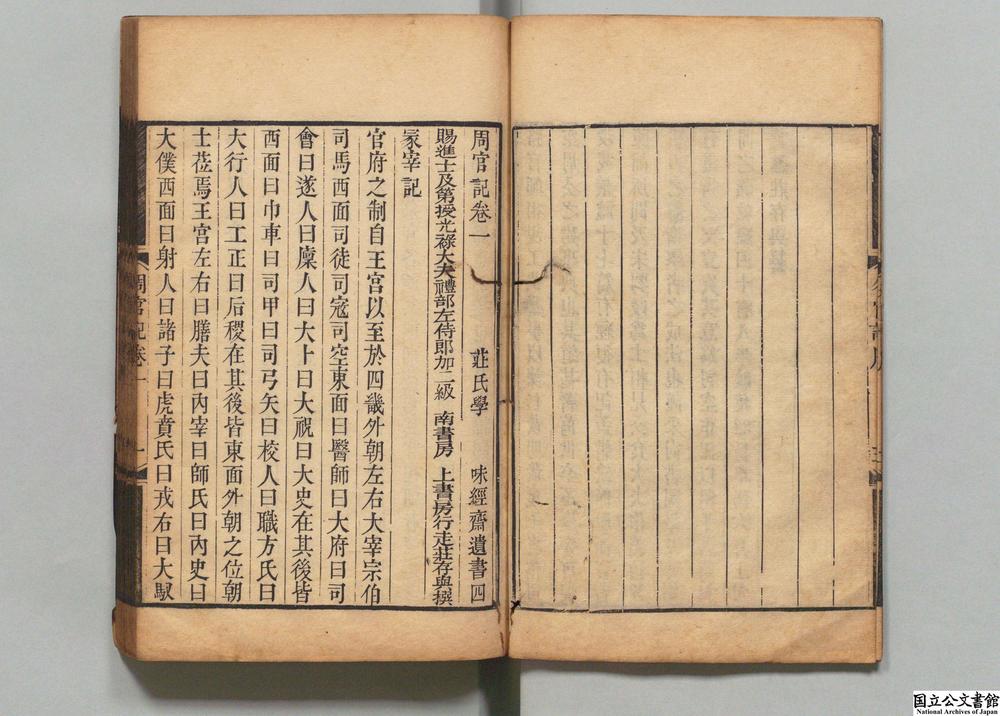 周官記卷一　莊氏學　味經齋遺書四
賜進士及第授光祿大夫禮部左侍郎加二級　南書房　上書房行走莊存與撰
冢宰記
官府之制自王宮以至於四畿外朝左右大宰宗伯
司馬西面司徒司寇司空東面曰醫師曰大府曰司
會曰遂人曰廩人曰大卜曰大祝曰大史在其後皆
西面曰巾車曰司甲曰司弓矢曰校人曰職方氏曰
大行人曰工正曰后稷在其後皆東面外朝之位朝
士蒞焉王宮左右曰膳夫曰內宰曰師氏曰內史曰
大僕西面曰射人曰諸子曰虎賁氏曰戎右曰大馭
周官記卷一
一
国立公文書館
National Archives of Japan